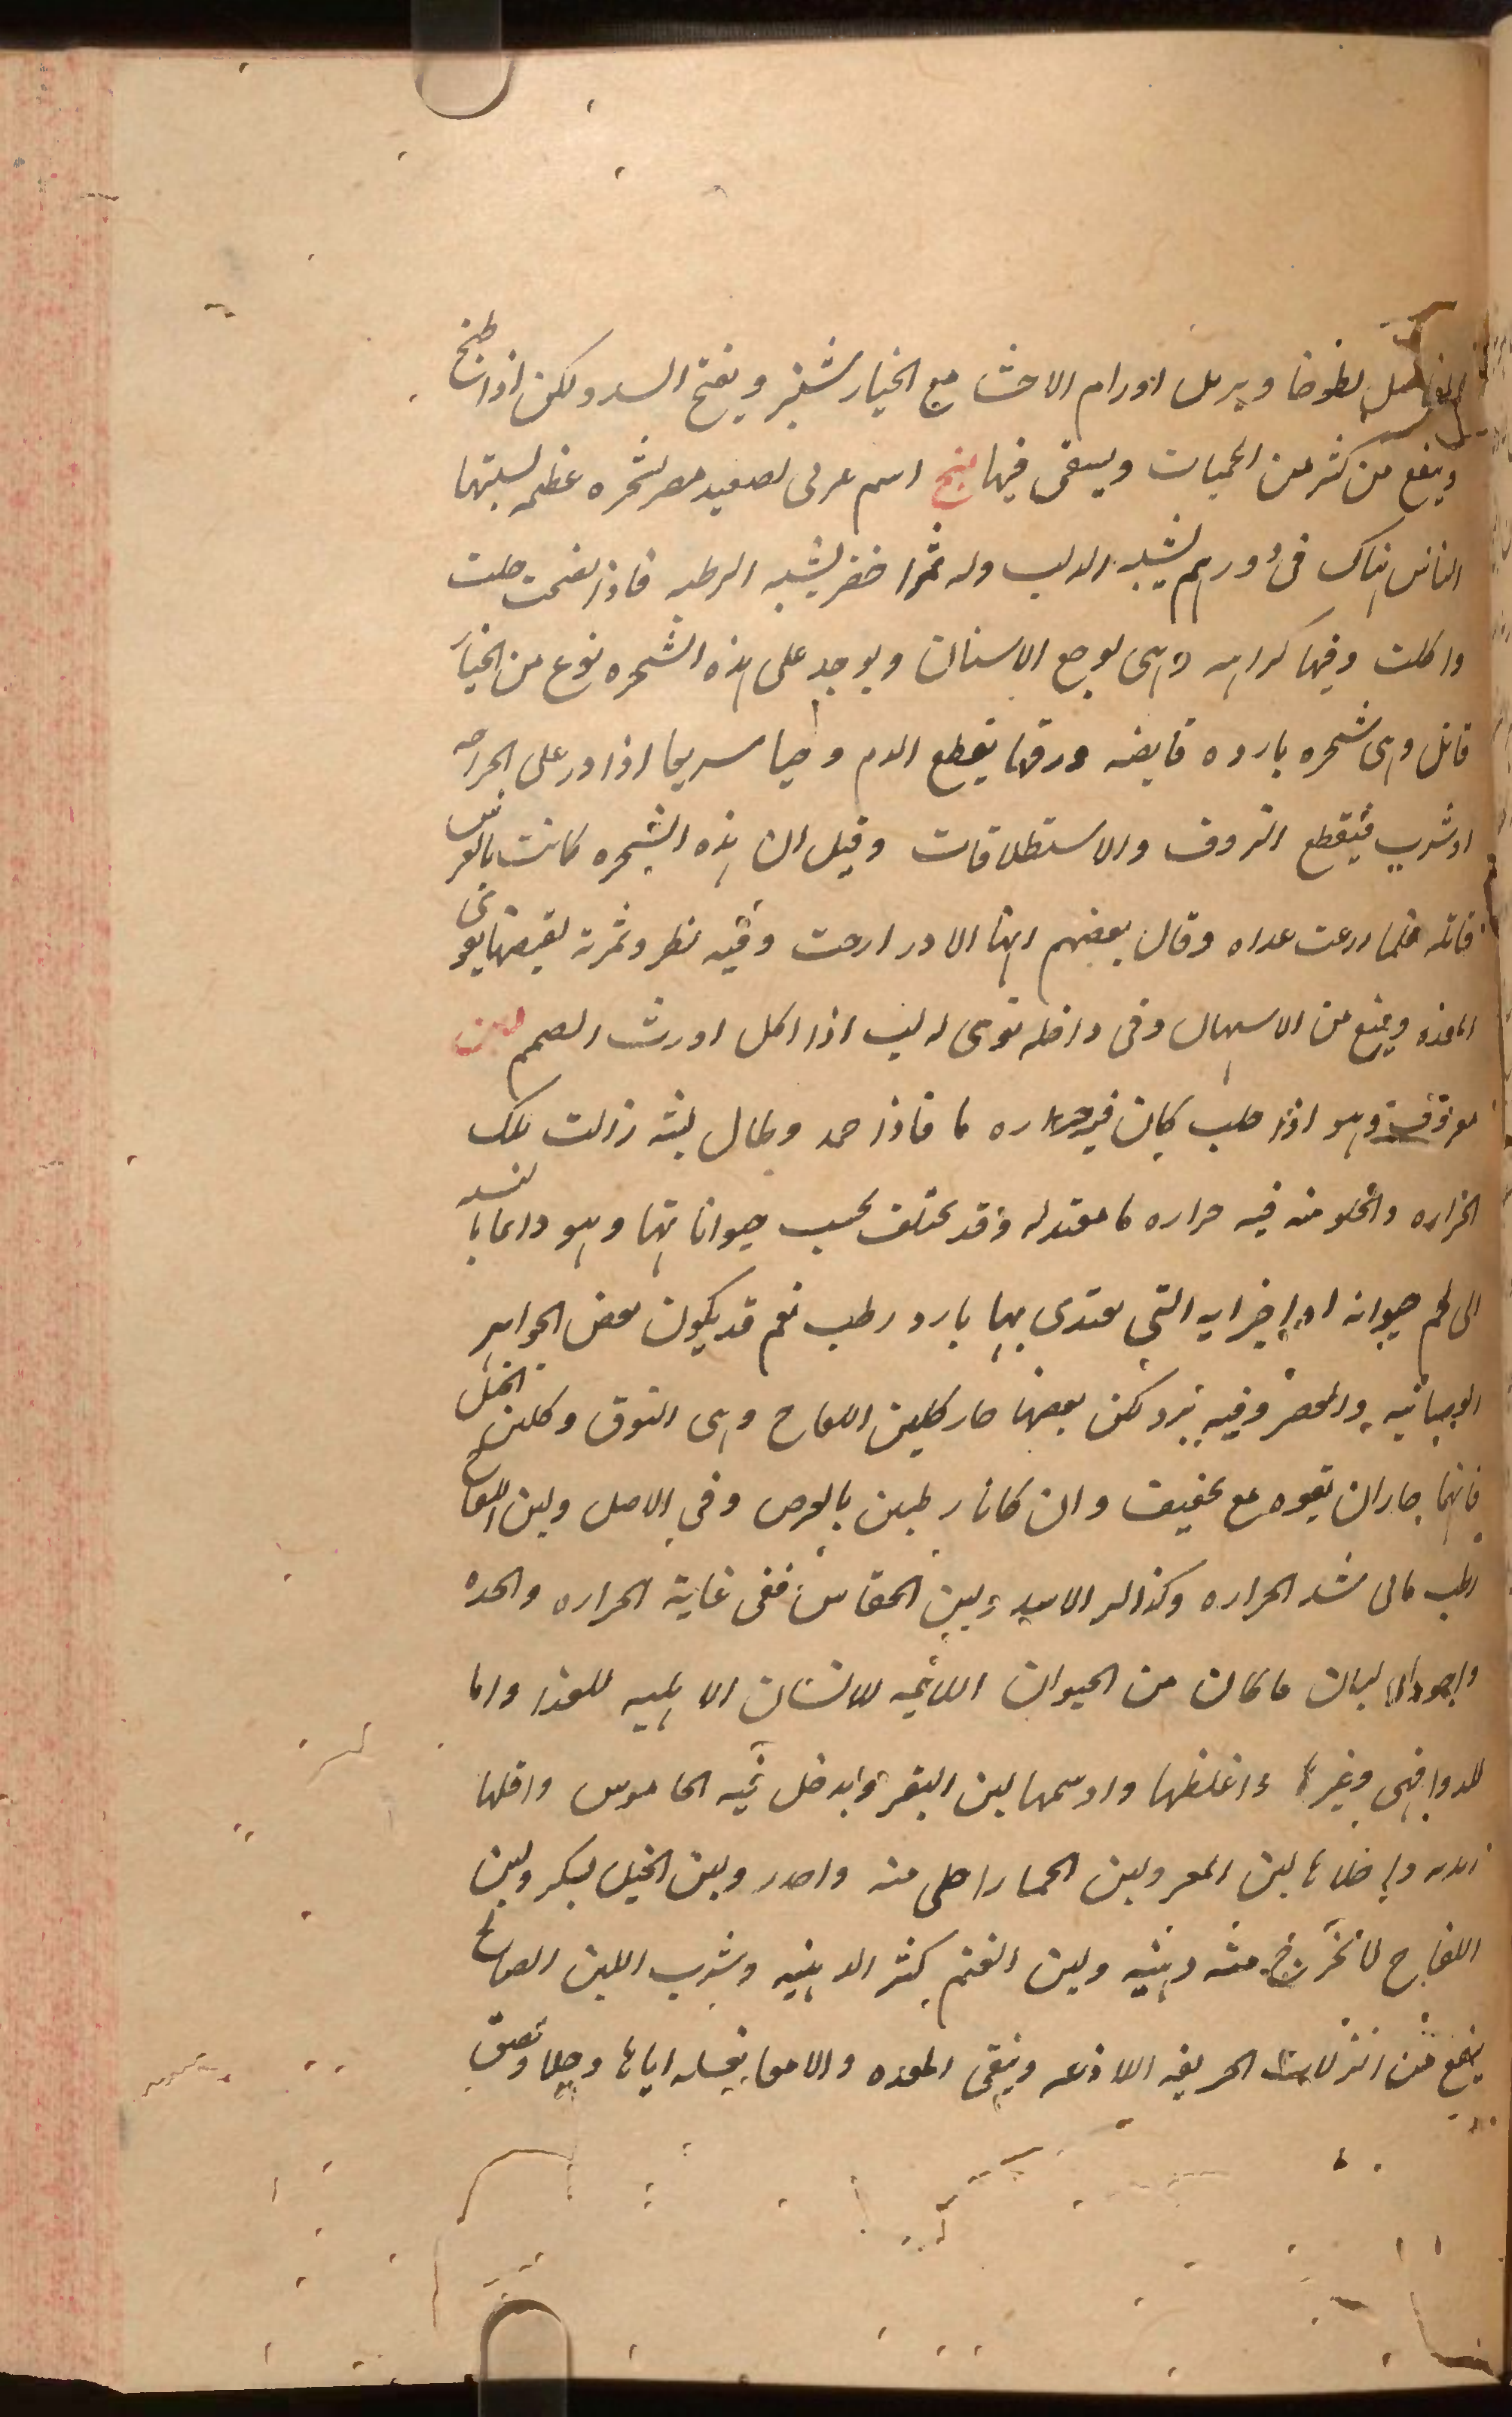 المفاصل لطوخا ويزيل اورام الاحشا مع الخيارشنبر ويفتح السدد لكن اذا طبخ
وينفع من كثير من الحميات ويسقى فيها لبخ اسم عربى لصعيد مصر لشجره عظيمه لسبتها
الناس هناك فى دورهم يشبه الدلب وله ثمر اخضر يشبه الرطبه فاذا نضجت حلت
واكلت وفيها كراهه وهى لوجع الاسنان ويوجد على هذه الشجره نوع من الخيا
قاتل وهى شجره بارده قابضه ورقها يقطع الدم وحيا سريعا اذا ذر على الجراحه
او شرب فيقطع النزوف والاستطلاقات وقيل ان هذه الشجره كانت بالفرس
قاتله فلما زرعت وقال بعضهم انها وفيه نظر وثمرته لقبضها يقوى
المعده ويمنع من الاسهال وفى داخله نوى له لب اذا اكل اورث الصمم لبن
معروف وهو اذا حلب كان فيه حراره ما فاذا جمد وطال لبثه زالت تلك
الحراره والحلو منه فيه حراره ما معتدله وقد يختلف بحسب حيواناتها وهو دايما بالنسبه
الى لحم حيوانه او اجزايه التى يغتدى بها بارد رطب نعم قد يكون بعض الجواهر
وفيه برد لكن بعضها حار كلبن اللقاح وهى النوق وكلبن الخيل
فانهما حاران بقوه مع تجفيف وان كانا رطبين بالعرض وفى الاصل ولبن اللقاح
رطب مالى شد الحراره وكذالك الاسد ولبن ففى غاية الحراره والحده
واجود الالبان ما كان من الحيوان للانسان الاهليه للغذا واما
للدوا فهى وغيرها واغلظها وادسمها لبن البقر ويدخل فيه الجاموس واقلها
زبده واحلاها لبن المعز ولبن الحمار احلى منه وادر ولبن الخيل يسكر ولبن
اللقاح لا تخرج منه دهنيه ولبن الغنم كثير الدهنيه وشرب اللبن الصالح
ينفع من النزلات الحريفه اللاذعه وينقى المعده والامعا بغسله اياها وجلا